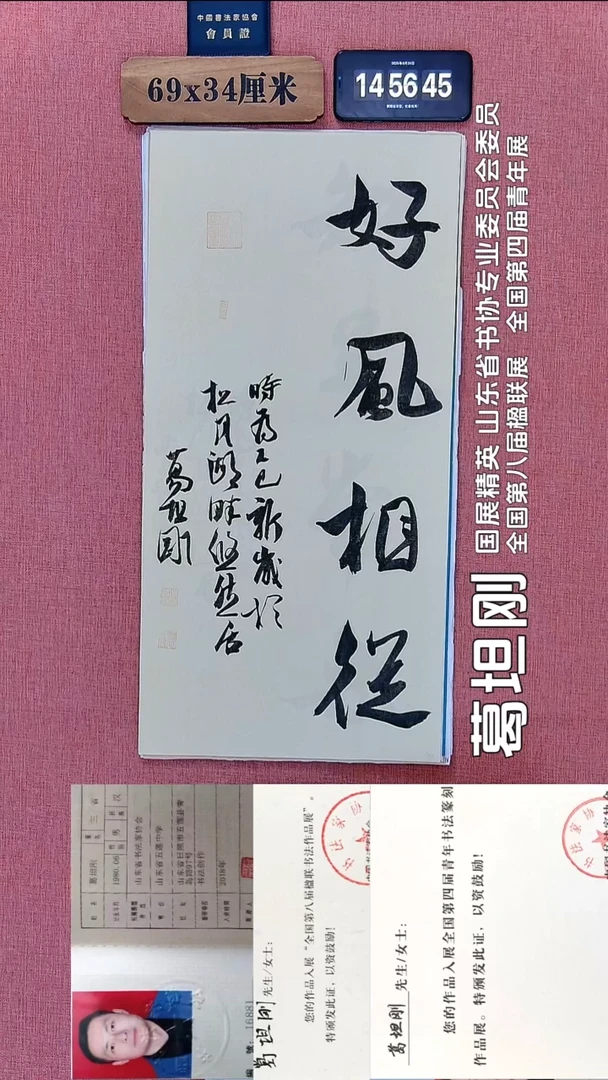 中國書法家協會
會員證
69x34厘米
14 56 45
好風相從
時為乙巳新歲於
松月湖畔悠然居
葛坦剛
葛坦刚
国展精英 山东省书协专业委员会委员
全国第八届楹联展 全国第四届青年展
姓名 葛坦刚
1980.06
山东省书法家协会
山东省五莲中学
书法创作
2018年
葛坦刚 先生/女士：
您的作品入展“全国第八届楹联书法作品展”。
特颁发此证，以资鼓励！
葛坦刚 先生/女士：
您的作品入展全国第四届青年书法篆刻
作品展。特颁发此证，以资鼓励！